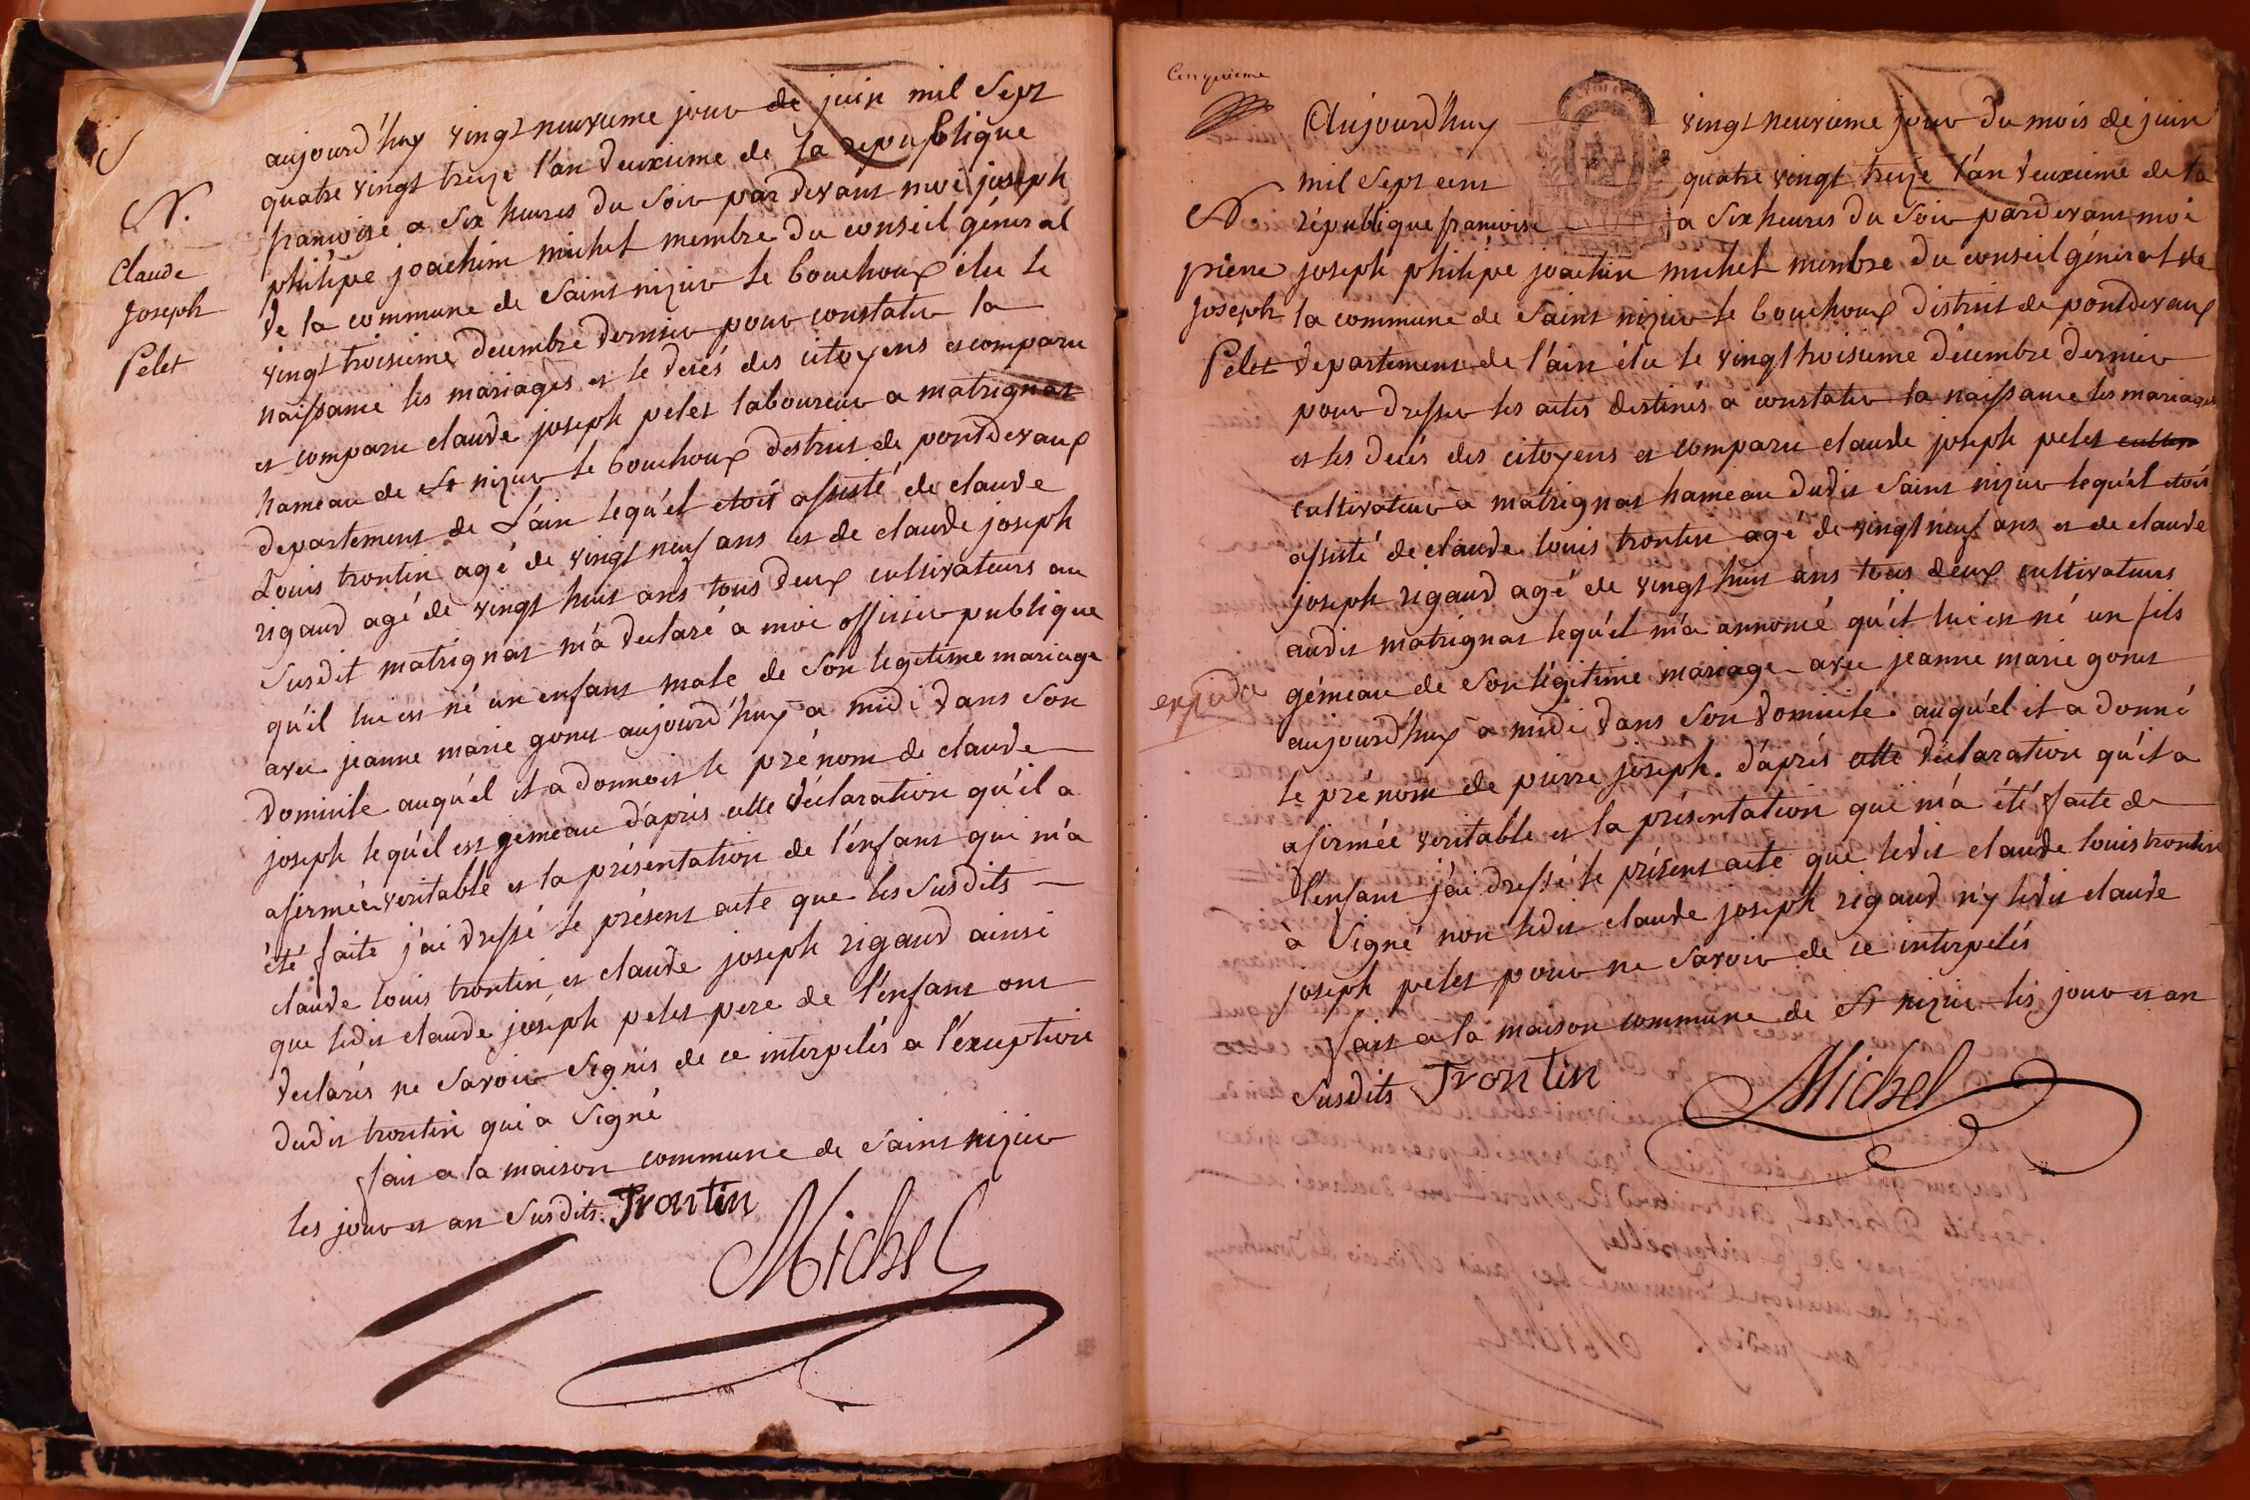 N.
Claude
Joseph
Pelet
aujourd'huy vingt neuvieme jour de juin mil Sept
quatre vingt treize l'an deuxieme de la republique
francoise a six heures du soir par devant moi joseph
philipe joachim michel membre du conseil géneral
de la commune de Saint nizier le bouchoux élu le
vingt troisieme decembre dernier pour constater la
naissance les mariages et le décés des citoyens et comparu
et comparu claude joseph pelet laboureur a matrignat
hameau de St nizier le bouchoux distruit de pontdevaux
departement de L'ain lequ'el etoit assisté de claude
Louis trontin agé de vingt neuf ans et de claude joseph
rigaud agé de vingt huit ans tous deux cultivateurs au
Susdit matrignat m'a declaré a moi officier publique
qu'il lui est né un enfant male de Son legetime mariage
avec jeanne marie gonet aujourd'huy a midi dans Son
domicile auqu'el il a donnoit le prénom de claude
joseph lequ'el est gemeau d'apris cette déclaration qu'il a
afirmée veritable et la présentation de l'enfant qui m'a
été faite j'ai dressé le présent acte que les Susdits
claude louis trontin et claude joseph rigaud ainsi
que ledit claude joseph pelet pere de l'enfant ont
declarés ne Savoir Signés de ce interpelés a l'exeption
dudit trontin qui a Signé
fait a la maison commune de Saint nizier
les jour et an Susdits. Trontin
Michel
Cinquieme
N
pierre
Joseph
Pelet
expedié
Aujourd'huy vingt neuvieme jour du mois de juin
mil Sept cent quatre vingt treize l'an deuxieme de la
république francoise a Six heures du Soir pardevant moi
joseph philipe joachin michel membre du conseil général de
la commune de Saint nizier le bouchoux distruit de pontdevaux
departement de l'ain élu le vingt troisieme décembre dernier
pour dresser les actes destinés a constater la naissance les mariages
et les decés des citoyens et comparu claude joseph pelet
cultivateur a matrignat hameau dudit Saint nizier lequ'el etoit
assisté de claude louis trontin agé de vingt neuf ans et de claude
joseph rigaud agé de vingt huit ans tous deux cultivateurs
audit matrignat lequ'el m'a annoncé qu'il lui est né un fils
gémeau de Son légitime mariage avec jeanne marie gonet
aujourd'huy a midi dans Son domicile auqu'el il a donné
le prénom de pierre joseph. d'aprés cette déclaration qu'il a
afirmée veritable et la présentation qui m'a été faite de
l'enfant j'ai dressé le présent acte que ledit claude louis trontin
a Signé non ledit claude joseph rigaud n'y ledit claude
joseph pelet pour ne Savoir de ce interpelés
fait a la maison commune de St nizier les jour et an
Susdits Trontin
Michel